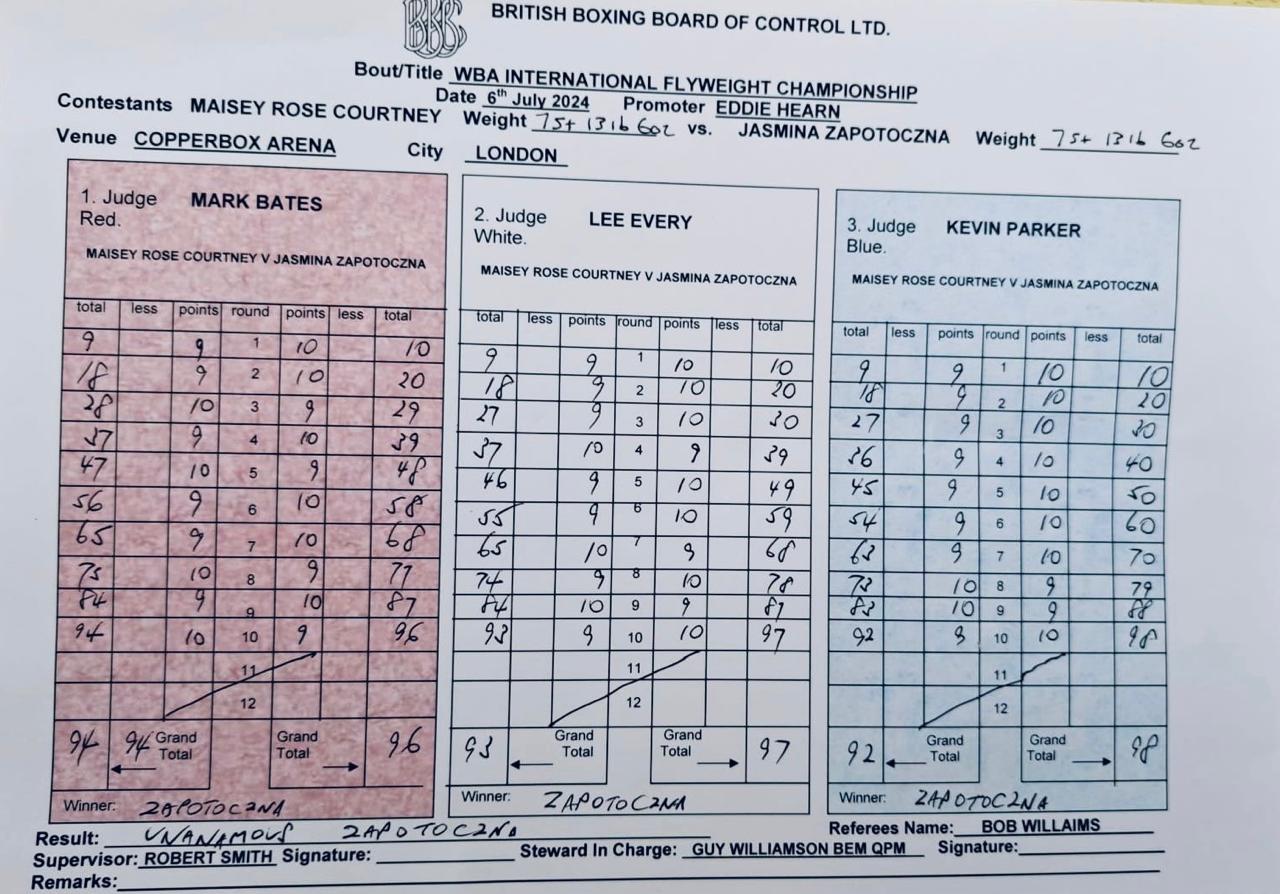 BBBC
BRITISH BOXING BOARD OF CONTROL LTD.
Bout/Title WBA INTERNATIONAL FLYWEIGHT CHAMPIONSHIP
Date 6th July 2024 Promoter EDDIE HEARN
Contestants MAISEY ROSE COURTNEY Weight 7st 13lb 6oz vs. JASMINA ZAPOTOCZNA Weight 7st 13lb 6oz
Venue COPPERBOX ARENA City LONDON
1. Judge MARK BATES
Red.
MAISEY ROSE COURTNEY V JASMINA ZAPOTOCZNA
total less points round points less total
9 9 1 10 10
18 9 2 10 20
28 10 3 9 29
37 9 4 10 39
47 10 5 9 48
56 9 6 10 58
65 9 7 10 68
75 10 8 9 77
84 9 9 10 87
94 10 10 9 96
11
12
94 94 Grand Total Grand Total 96
Winner: ZAPOTOCZNA
2. Judge LEE EVERY
White.
MAISEY ROSE COURTNEY V JASMINA ZAPOTOCZNA
total less points round points less total
9 9 1 10 10
18 9 2 10 20
27 9 3 10 30
37 10 4 9 39
46 9 5 10 49
55 9 6 10 59
65 10 7 9 68
74 9 8 10 78
84 10 9 9 87
93 9 10 10 97
11
12
93 Grand Total Grand Total 97
Winner: ZAPOTOCZNA
3. Judge KEVIN PARKER
Blue.
MAISEY ROSE COURTNEY V JASMINA ZAPOTOCZNA
total less points round points less total
9 9 1 10 10
18 9 2 10 20
27 9 3 10 30
36 9 4 10 40
45 9 5 10 50
54 9 6 10 60
63 9 7 10 70
73 10 8 9 79
83 10 9 9 88
92 9 10 10 98
11
12
92 Grand Total Grand Total 98
Winner: ZAPOTOCZNA
Result: UNANAMOUS ZAPOTOCZNA
Referees Name: BOB WILLAIMS
Supervisor: ROBERT SMITH Signature: Steward In Charge: GUY WILLIAMSON BEM QPM Signature:
Remarks: